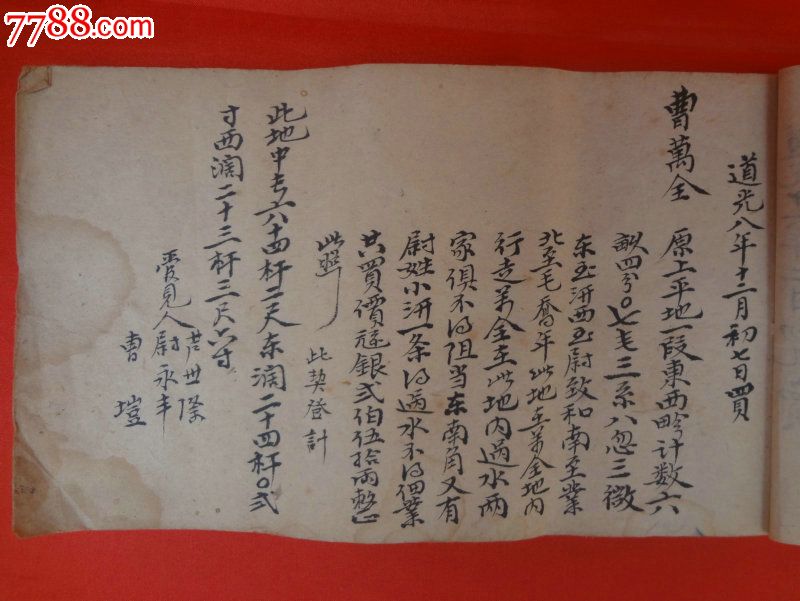 7788.com
中国收藏热线
道光八年十二月初七日四買
曹萬全
原上平地一段東西畛计数六
畝四分〇七毛三系八忽三微
东至汧西至尉致和南至業
北至毛喬年此地主萬全地内
行走萬全主此地内過水两
家俱不得阻当东南角又有
尉姓小汧一条得過水不得佃業
共買價冠銀弍伯伍拾両整
此照
此契登計
此地中長六十四杆二尺东濶二十四杆〇弍
寸西濶二十三杆三尺六寸
見人尉永丰
世隆
曹塏